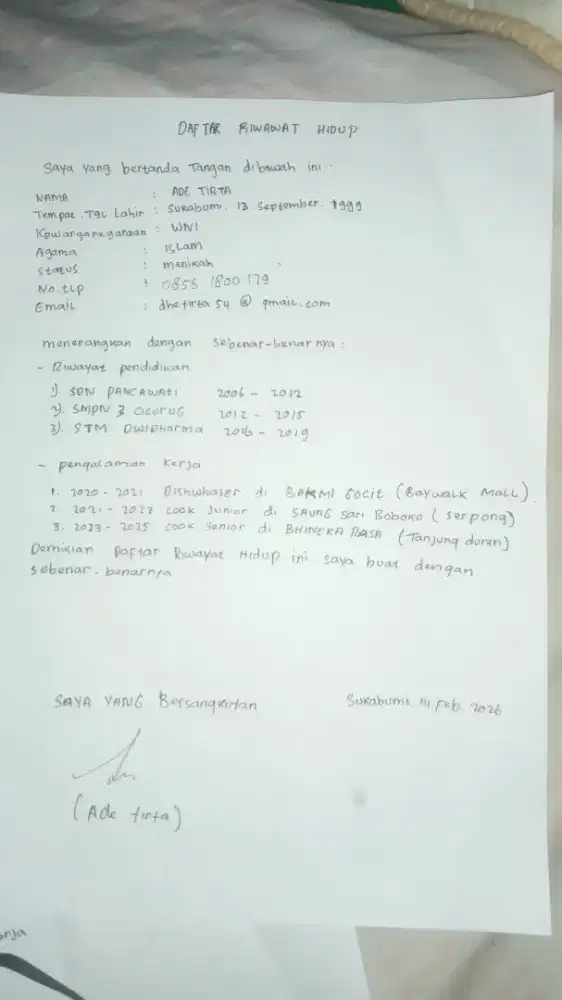 DAFTAR RIWAWAT HIDUP
Saya yang bertanda Tangan dibawah ini.
NAMA : ADE TIRTA
Tempat. Tgl Lahir : Sukabumi. 13 September. 1999
Kewarganegaraan : WNI
Agama : ISLam
Status : menikah
No. tlp : 0856 1800 179
Email : dhetirta54@gmail.com
menerangkan dengan sebenar-benarnya :
- Riwayat pendidikan
1) SDN PANCAWATI 2006 - 2012
2). SMPN 3 CICURUG 2012 - 2015
3). STM DWIPHARMA 2016 - 2019
- pengalaman kerja
1. 2020 - 2021 Dishwhaser di BAKMI GOCIT (Baywalk MALL).
2. 2021 - 2022 COOK Junior di SAUNG Sari Boboko (Serpong)
3. 2023 - 2025 COOK Senior di BHINEKA RASA (Tanjung duren)
Demikian Daftar Riwayat Hidup ini saya buat dengan
sebenar-benarnya
SAYA YANG Bersangkutan
Sukabumi, Feb. 2026
(Ade tirta)
anja